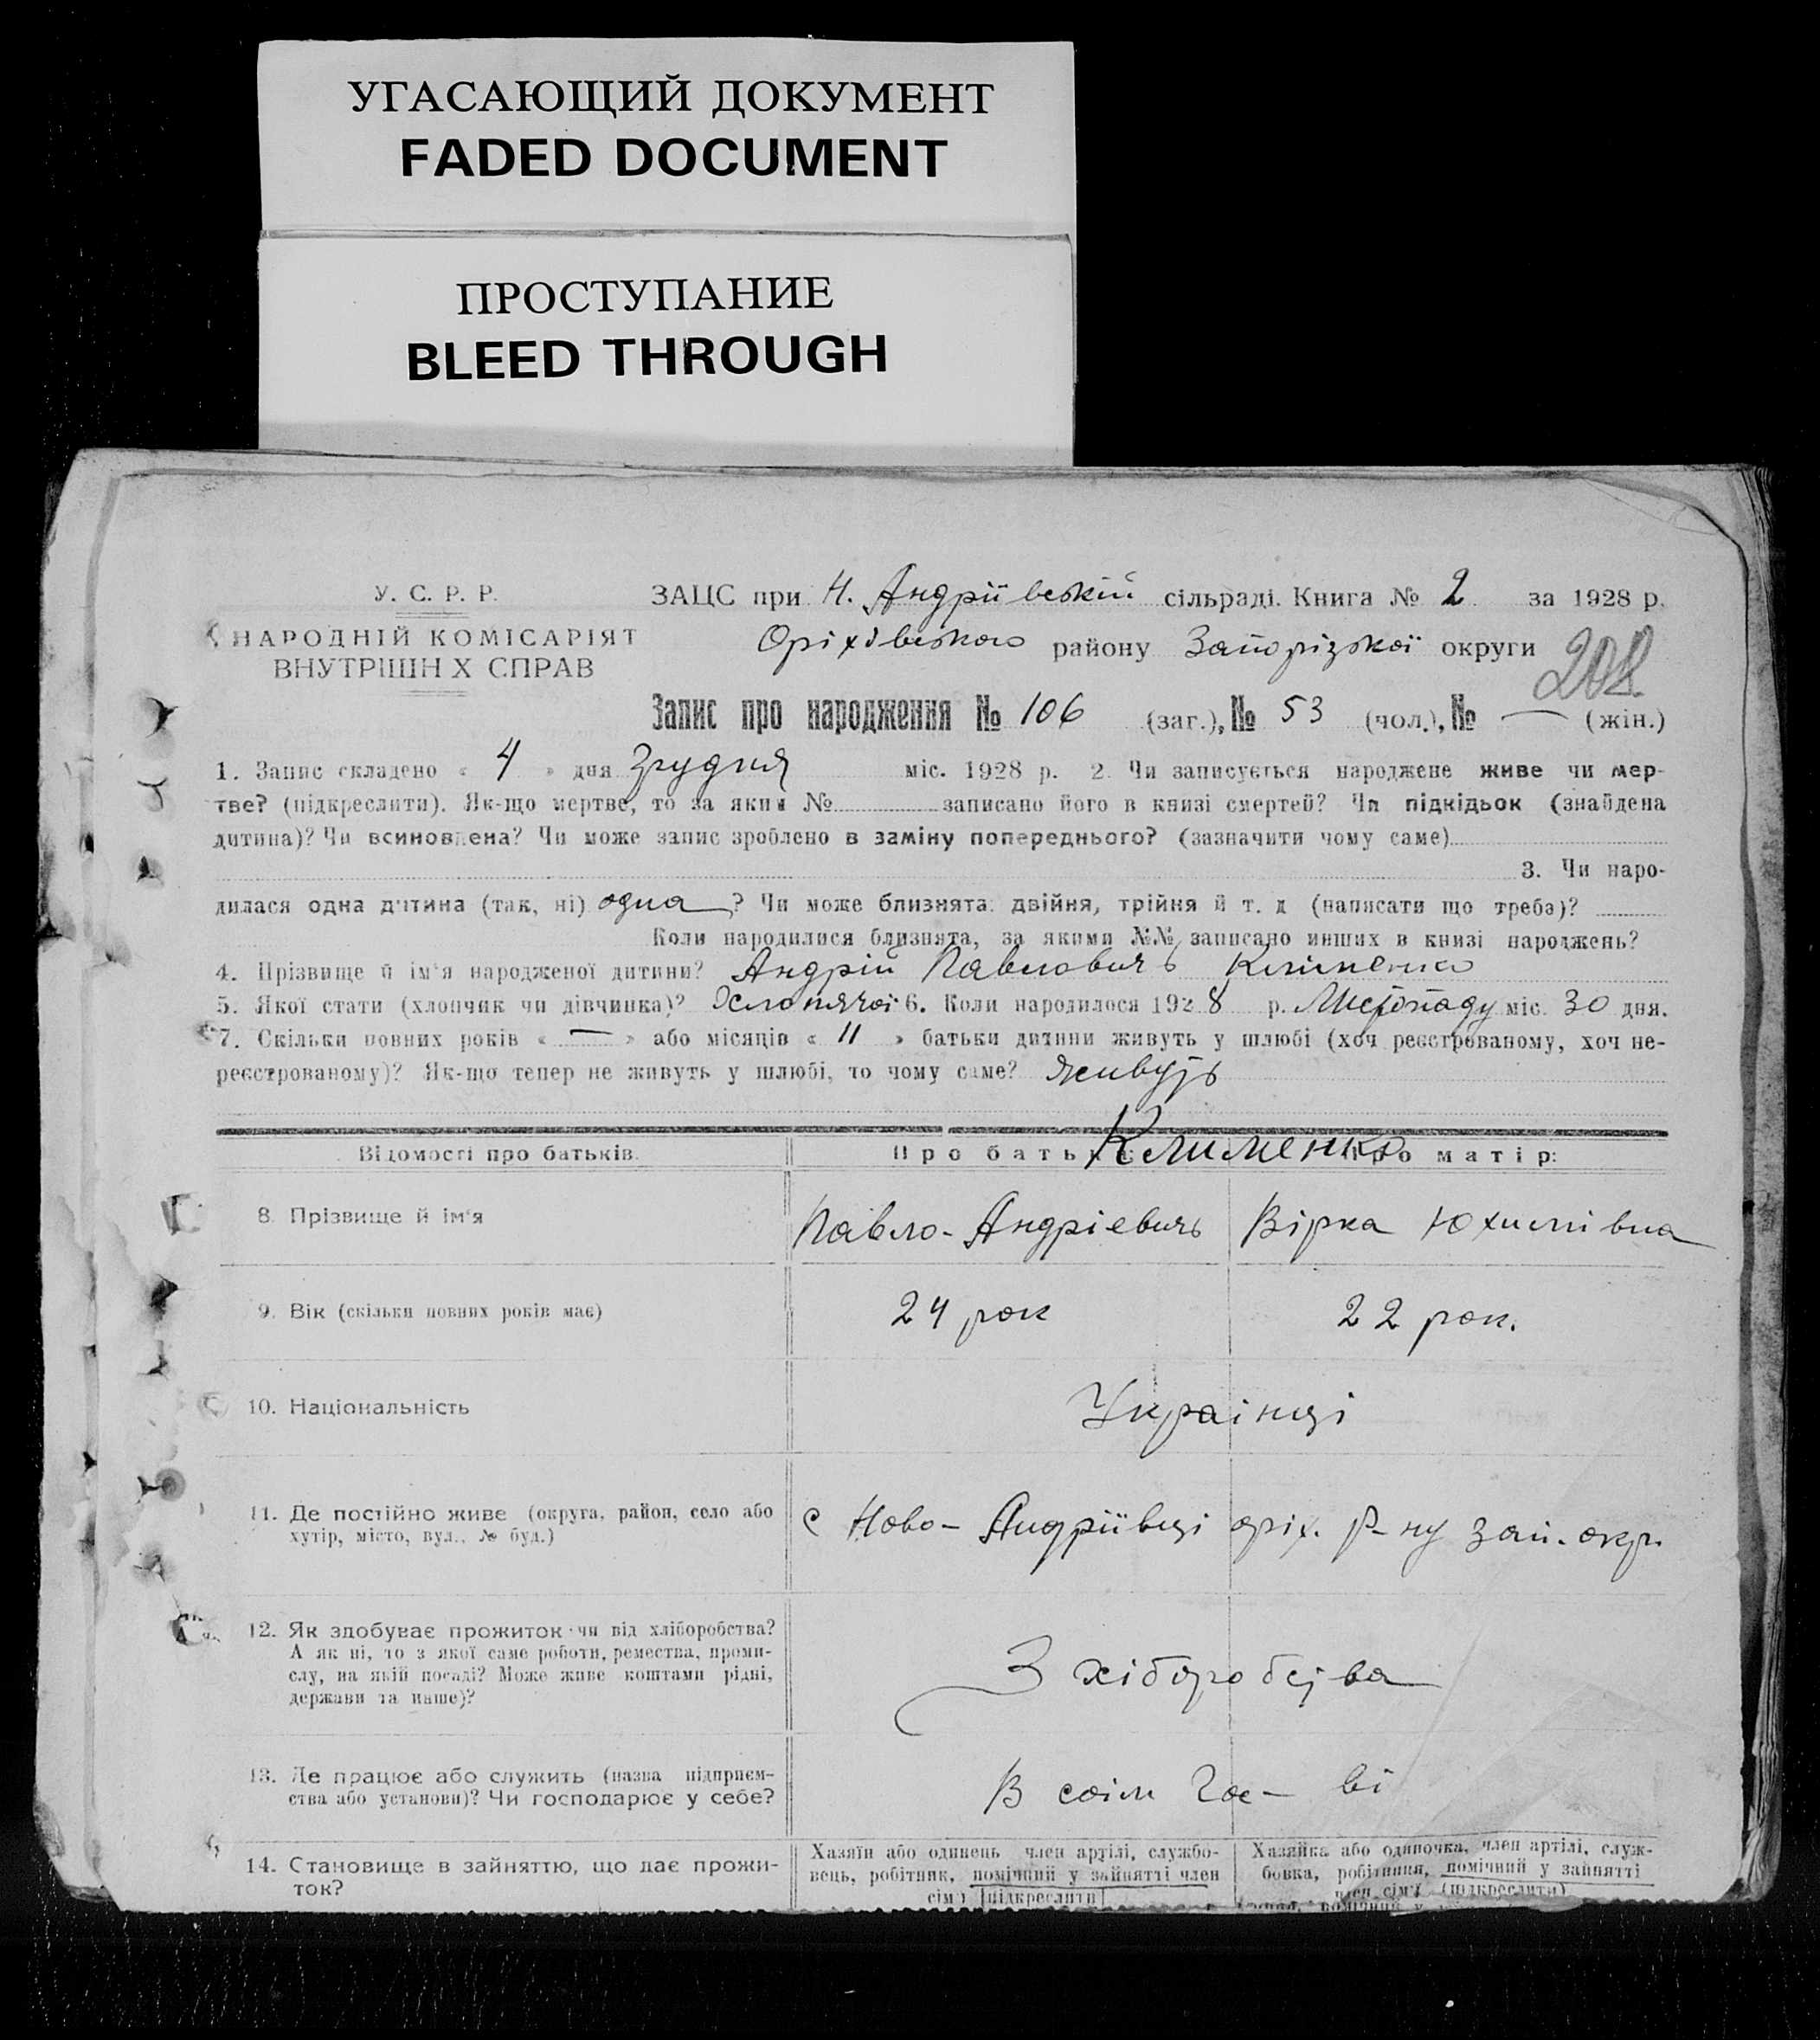 УГАСАЮЩИЙ ДОКУМЕНТ
FADED DOCUMENT
ПРОСТУПАНИЕ
BLEED THROUGH
У. С. Р. Р.
НАРОДНІЙ КОМІСАРІЯТ
ВНУТРІШН Х СПРАВ
ЗАЦС при Н. Андріївській сільраді. Книга № 2 за 1928 р.
Оріхівського району Запорізької округи
208
Запис про народження № 106 (заг.), № 53 (чол.), № — (жін.)
1. Запис складено « 4 » дня Грудня міс. 1928 р. 2. Чи записується народжене живе чи мер-
тве? (підкреслити). Як-що мертве, то за яким № записано його в книзі смертей? Чи підкідьок (знайдена
дитина)? Чи всиновлена? Чи може запис зроблено в заміну попереднього? (зазначити чому саме)
3. Чи наро-
дилася одна дитина (так, ні) одна ? Чи може близнята: двійня, трійня й т. д (написати що треба)?
Коли народилися близнята, за якими №№ записано инших в книзі народжень?
4. Прізвище й ім'я народженої дитини? Андрій Павловичь Клименко
5. Якої стати (хлопчик чи дівчинка)? Хлопячої 6. Коли народилося 1928 р. Листопаду міс. 30 дня.
7. Скільки повних років « — » або місяців « 11 » батьки дитини живуть у шлюбі (хоч реєстрованому, хоч не-
реєстрованому)? Як-що тепер не живуть у шлюбі, то чому саме? живуть
Відомості про батьків. Про батька Клименко Про матір:
8. Прізвище й ім'я Павло-Андріевичь Вірка Юхимівна
9. Вік (скільки повних років має) 24 рок 22 рок.
10. Національність Українці
11. Де постійно живе (округа, район, село або
хутір, місто, вул., № буд.)
с Ново-Андріївці оріх. р-ну зап. окр.
12. Як здобуває прожиток чи від хліборобства?
А як ні, то з якої саме роботи, ремества, проми-
слу, на якій посаді? Може живе коштами рідні,
держави та инше)?
З хіборобства
13. Де працює або служить (назва підприєм-
ства або установи)? Чи господарює у себе?
В соїм Гос-ві
14. Становище в зайняттю, що дає прожи-
ток?
Хазяїн або одинець член артілі, службо-
вець, робітник, помічний у зайнятті член
сім'ї [підкреслити]
Хазяйка або одиночка, член артілі, служ-
бовка, робітниця, помічний у зайнятті
член сім'ї (підкреслити)